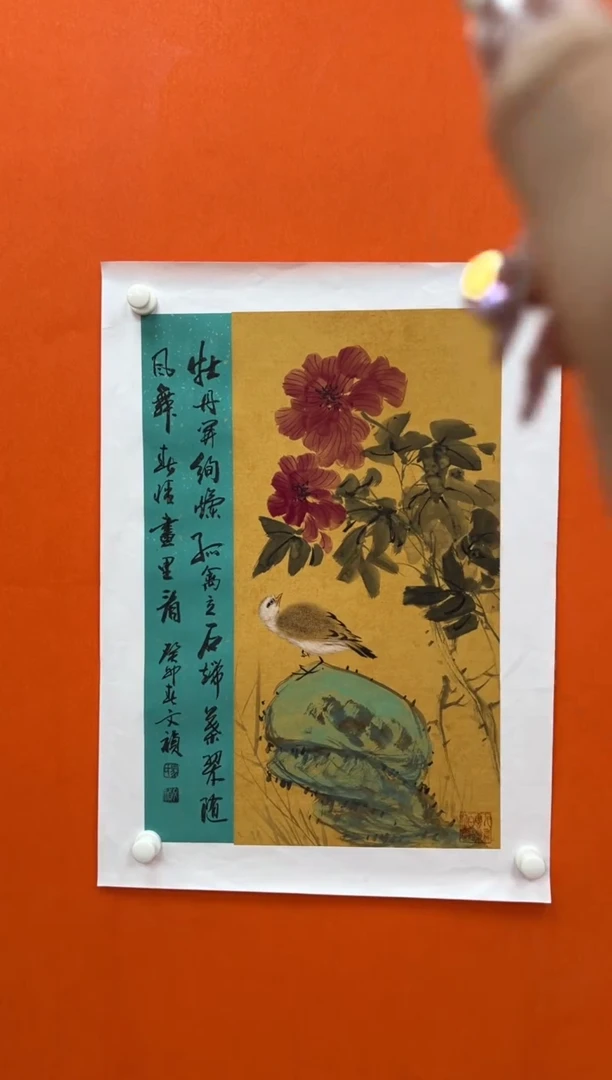 牡丹開絢爛孤禽立石端葉翠随
風舞春情畫里看癸卯春文禎